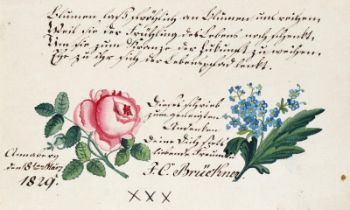 Blumen, laß fröhlich an Blumen uns reihen,
Weil sie der Frühling des Lebens noch schenkt,
Um sie zum Kranze der Zukunft zu weihen,
Ehe zu ihr sich der Lebenspfad lenkt.
Dieses schrieb
zum geneigten
Andenken
Deine Dich
liebende Freundin
J. C. Brückner
Annaberg
den 8ten März
1829.